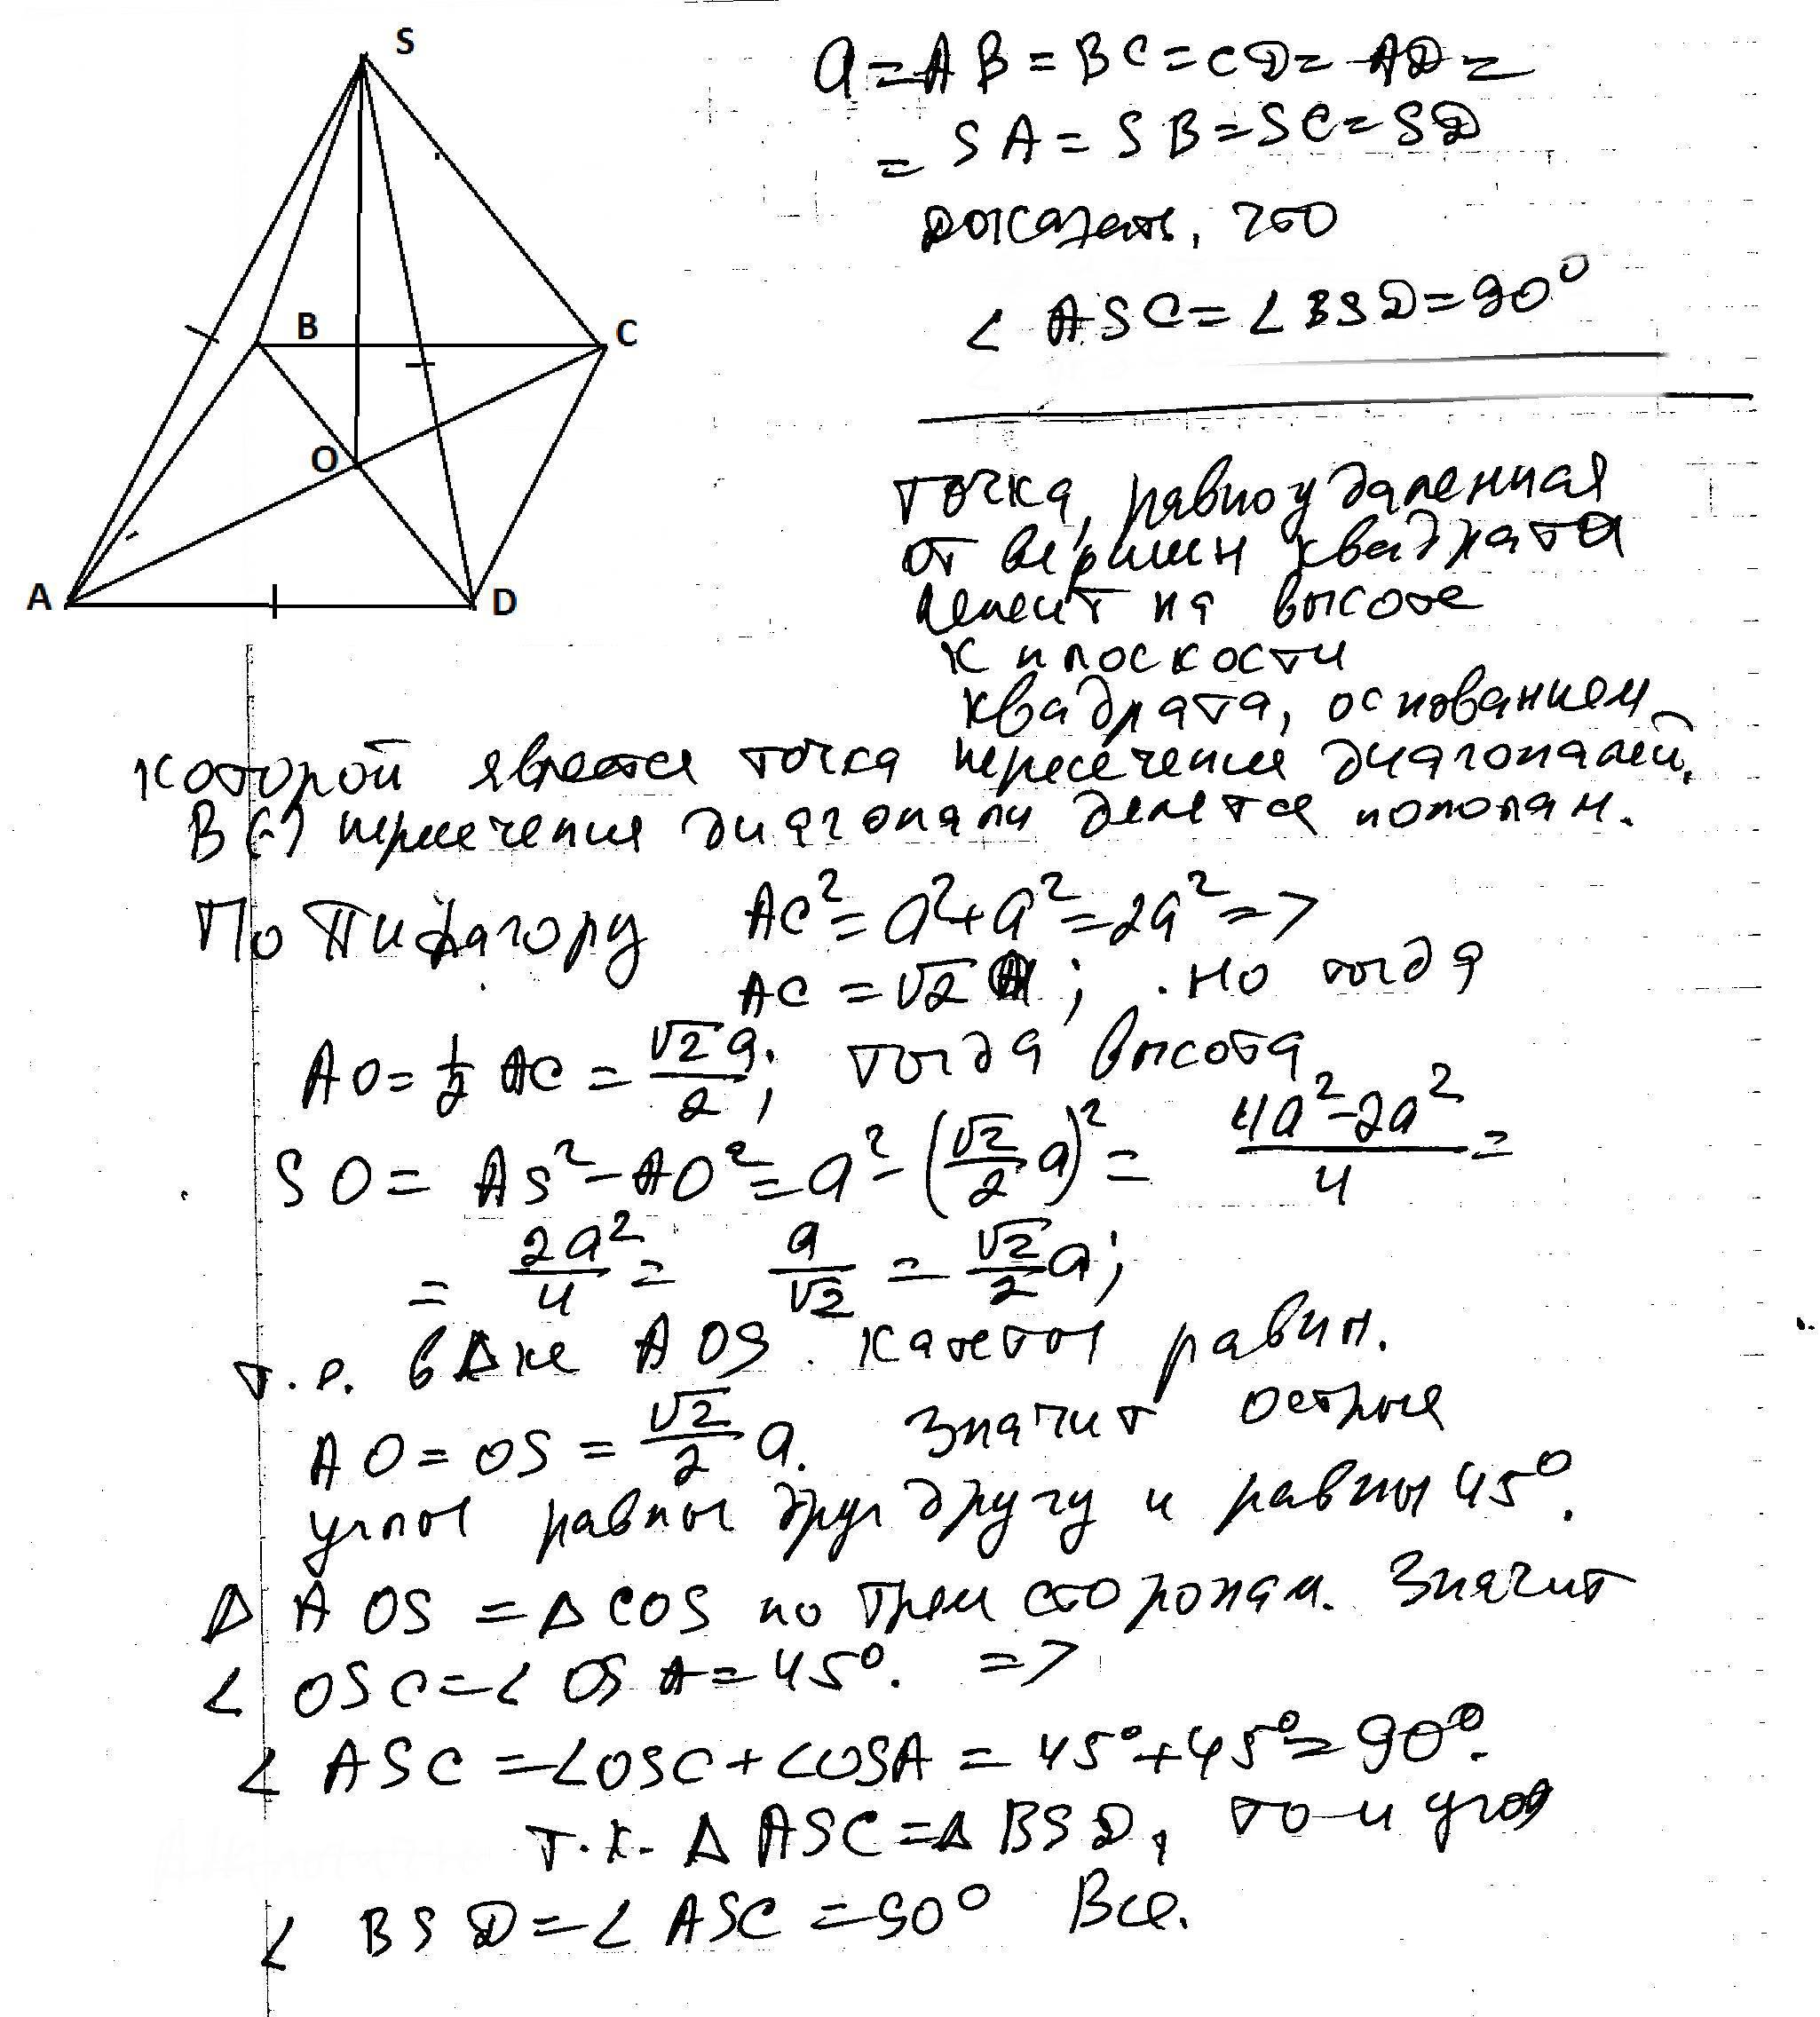 S
B
C
O
A
D
a = AB = BC = CD = AD =
= SA = SB = SC = SD
Доказать, что
∠ ASC = ∠ BSD = 90°
точка, равноудаленная
от вершин квадрата
лежит на высоте
к плоскости
квадрата, основанием
которой явеется точка пересечения диагоналей.
В (·) пересечения диагонали делятся пополам.
По Пифагору AC² = a² + a² = 2a² =>
AC = √2 a; но тогда
AO = 1/2 AC = √2a/2; тогда высота
SO = AS² - AO² = a² - (√2/2 a)² = 4a² - 2a²/4 =
= 2a²/4 = a/√2 = √2/2 a;
т.е. в Δ-ке AOS катеты равны.
AO = OS = √2/2 a. Значит острые
углы равны друг другу и равны 45°.
Δ AOS = Δ COS по трем сторонам. Значит
∠ OSC = ∠ OSA = 45°. =>
∠ ASC = ∠OSC + ∠OSA = 45° + 45° = 90°.
т.к. Δ ASC = Δ BSD, то и угол
∠ BSD = ∠ ASC = 90° Все.